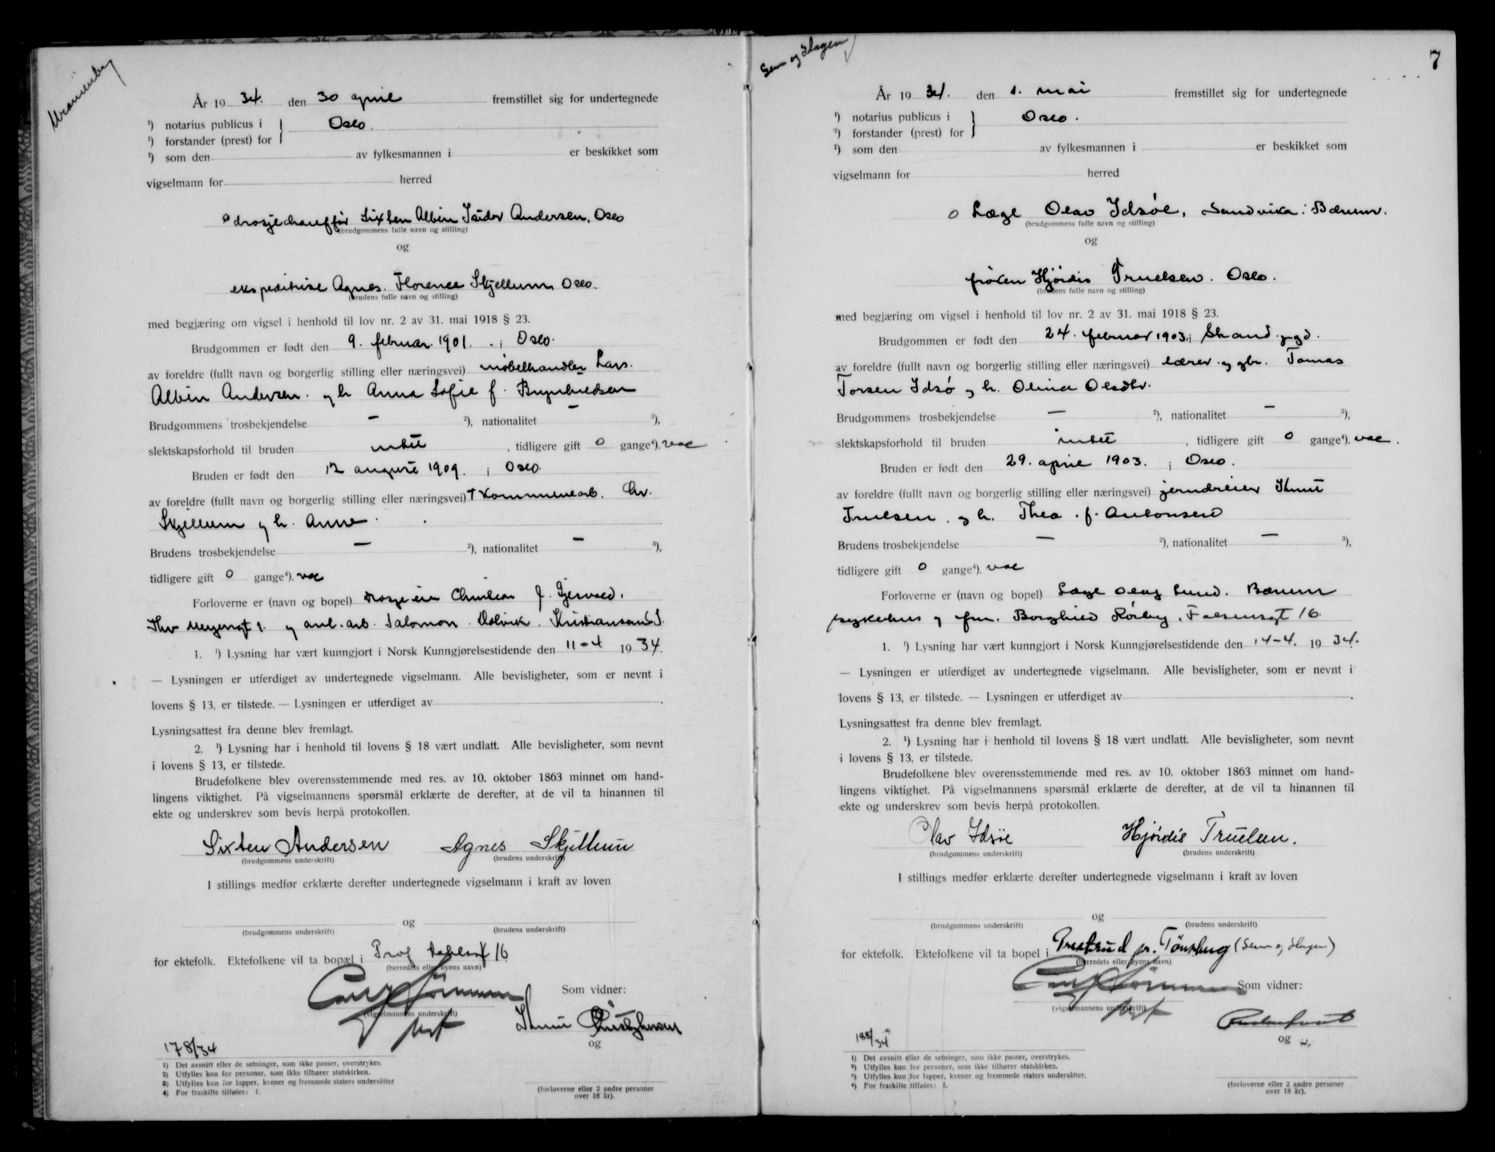 År 19 34. den 30 april fremstillet sig for undertegnede
¹) notarius publicus i } Oslo.
¹) forstander (prest) for
¹) som den av fylkesmannen i er beskikket som
vigselmann for herred
drosjechauffør Sixten Albin Isidor Andersen, Oslo
(brudgommens fulle navn og stilling)
og
ekspeditrise Agnes Florence Skjellum Oslo.
(brudens fulle navn og stilling)
med begjæring om vigsel i henhold til lov nr. 2 av 31. mai 1918 § 23.
Brudgommen er født den 9. februar 1901. i Oslo.
av foreldre (fullt navn og borgerlig stilling eller næringsvei) møbelhandler Lars.
Albin Andersen. og h. Anna Sofie f.
Brudgommens trosbekjendelse — ²), nationalitet — ³),
slektskapsforhold til bruden intet , tidligere gift 0 gange⁴).
Bruden er født den 12 august 1909. i Oslo
av foreldre (fullt navn og borgerlig stilling eller næringsvei) † Kommunearb. Chr.
Skjellum og h. Anne.
Brudens trosbekjendelse — ²), nationalitet — ³),
tidligere gift 0 gange⁴).
Forloverne er (navn og bopel) drosjeeier Christian J.
og anl. arb. Salomon Kristiansand S.
1. ¹) Lysning har vært kunngjort i Norsk Kunngjørelsestidende den 11-4 19 34.
— Lysningen er utferdiget av undertegnede vigselmann. Alle bevisligheter, som er nevnt i
lovens § 13, er tilstede. — Lysningen er utferdiget av .
Lysningsattest fra denne blev fremlagt.
2. ¹) Lysning har i henhold til lovens § 18 vært undlatt. Alle bevisligheter, som nevnt
i lovens § 13, er tilstede.
Brudefolkene blev overensstemmende med res. av 10. oktober 1863 minnet om hand-
lingens viktighet. På vigselmannens spørsmål erklærte de derefter, at de vil ta hinannen til
ekte og underskrev som bevis herpå protokollen.
Sixten Andersen Agnes Skjellum
(brudgommens underskrift) (brudens underskrift)
I stillings medfør erklærte derefter undertegnede vigselmann i kraft av loven
og
(brudgommens underskrift) (brudens underskrift)
for ektefolk. Ektefolkene vil ta bopæl i Prof. 16
(herredets eller byens navn)
Som vidner:
(vigselmannens underskrift)
og
178/34
1) Det avsnitt eller de setninger, som ikke passer, overstrykes.
2) Utfylles kun for personer, som ikke tilhører statskirken.
3) Utfylles kun for lapper, kvener og fremmede staters undersåtter
4) For fraskilte tilføies: f.
(forloverne eller 2 andre personer
over 18 år).
Sem og Slagen
7
År 19 34. den 1. mai fremstillet sig for undertegnede
¹) notarius publicus i } Oslo.
¹) forstander (prest) for
¹) som den av fylkesmannen i er beskikket som
vigselmann for herred
Læge Olav Idsøe, Sandvika i Bærum.
(brudgommens fulle navn og stilling)
og
frøken Hjördis Truelsen. Oslo.
(brudens fulle navn og stilling)
med begjæring om vigsel i henhold til lov nr. 2 av 31. mai 1918 § 23.
Brudgommen er født den 24. februar 1903 i Strand
av foreldre (fullt navn og borgerlig stilling eller næringsvei) lærer og gbr. Tomas
Torsen Idsø og h. Olina Olsdtr.
Brudgommens trosbekjendelse — ²), nationalitet — ³),
slektskapsforhold til bruden intet , tidligere gift 0 gange⁴).
Bruden er født den 29. april 1903. i Oslo.
av foreldre (fullt navn og borgerlig stilling eller næringsvei) jerndreier Knut
Truelsen. og h. Thea f. Antonsen
Brudens trosbekjendelse — ²), nationalitet — ³),
tidligere gift 0 gange⁴).
Forloverne er (navn og bopel) Læge Lund. Bærum
sykehus og frk. Borghild 16
1. ¹) Lysning har vært kunngjort i Norsk Kunngjørelsestidende den 14-4. 19 34.
— Lysningen er utferdiget av undertegnede vigselmann. Alle bevisligheter, som er nevnt i
lovens § 13, er tilstede. — Lysningen er utferdiget av .
Lysningsattest fra denne blev fremlagt.
2. ¹) Lysning har i henhold til lovens § 18 vært undlatt. Alle bevisligheter, som nevnt
i lovens § 13, er tilstede.
Brudefolkene blev overensstemmende med res. av 10. oktober 1863 minnet om hand-
lingens viktighet. På vigselmannens spørsmål erklærte de derefter, at de vil ta hinannen til
ekte og underskrev som bevis herpå protokollen.
Olav Idsøe Hjördis Truelsen.
(brudgommens underskrift) (brudens underskrift)
I stillings medfør erklærte derefter undertegnede vigselmann i kraft av loven
og
(brudgommens underskrift) (brudens underskrift)
for ektefolk. Ektefolkene vil ta bopel i pr. Tönsberg (Sem og Slagen)
(herredets eller byens navn)
Som vidner:
(vigselmannens underskrift)
og
188/34
1) Det avsnitt eller de setninger, som ikke passer, overstrykes.
2) Utfylles kun for personer, som ikke tilhører statskirken.
3) Utfylles kun for lapper, kvener og fremmede staters undersåtter.
4) For fraskilte tilføies: f.
(forloverne eller 2 andre personer
over 18 år).